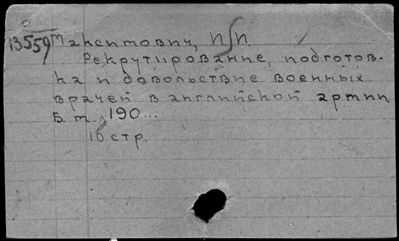 13559 Максимович, П.П.
Рекрутирование, подготов-
ка и довольствие военных
врачей в английской армии
Б.м., 190...
16 стр.